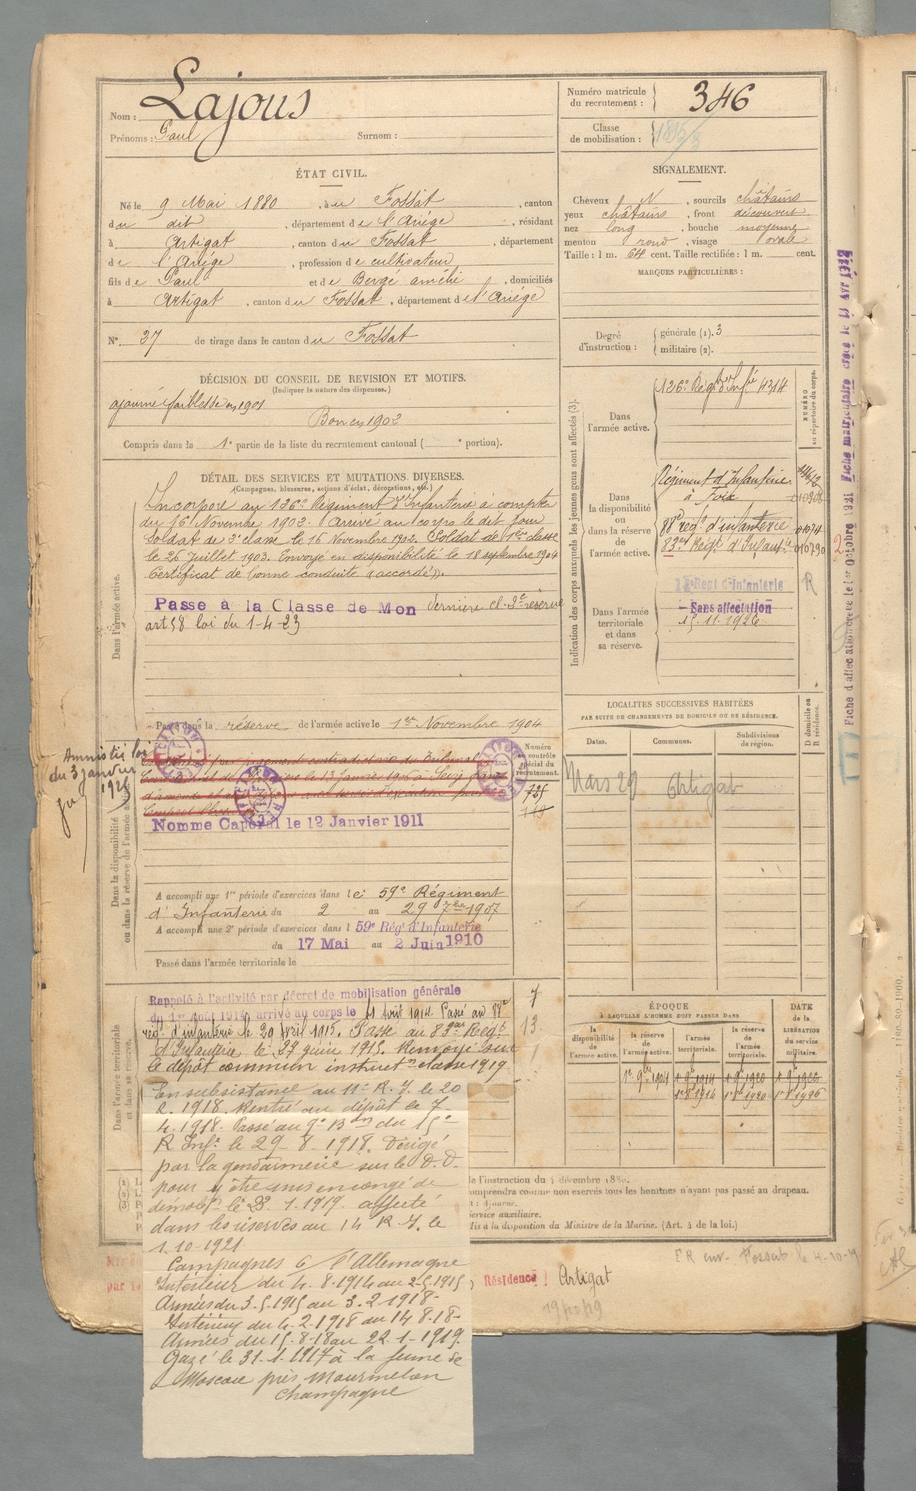 Nom : Lajous
Prénoms : Paul Surnom :
Numéro matricule du recrutement : 346
Classe de mobilisation :
ÉTAT CIVIL.
Né le 9 Mai 1880, à u Fossat, canton
du dit, département de l'Ariège, résidant
à Artigat, canton du Fossat, département
de l'Ariège, profession de cultivateur
fils de Paul et de Bergé amélie, domiciliés
à Artigat, canton du Fossat, département de l'Ariège
N° 27 de tirage dans le canton du Fossat
SIGNALEMENT.
Cheveux N, sourcils châtains
yeux châtains, front découvert
nez long, bouche moyenne
menton rond, visage ovale
Taille : 1 m. 64 cent. Taille rectifiée : 1 m. cent.
MARQUES PARTICULIÈRES :
Degré d'instruction : générale (1). 3
militaire (2).
DÉCISION DU CONSEIL DE REVISION ET MOTIFS.
(Indiquer la nature des dispenses.)
ajourné faiblesse en 1901
Bon en 1902
Compris dans la 1e partie de la liste du recrutement cantonal ( e portion).
DÉTAIL DES SERVICES ET MUTATIONS DIVERSES.
(Campagnes, blessures, actions d'éclat, décorations, etc.)
Dans l'armée active.
Incorporé au 126e Régiment d'Infanterie à compter
du 16 Novembre 1902. Arrivé au corps le dit jour
Soldat de 2e classe le 16 Novembre 1902. Soldat de 1ère classe
le 26 Juillet 1903. Envoyé en disponibilité le 18 septembre 1904
Certificat de bonne conduite "accordé".
Passe à la Classe de Mon dernière cl. 2e réserve
art 58 loi du 1-4-23
Passé dans la réserve de l'armée active le 1er Novembre 1904
Amnistié loi
du 3 janvier
1925
Dans la disponibilité
ou dans la réserve de l'armée active.
Numéro au contrôle spécial du recrutement.
725
Nommé Caporal le 12 Janvier 1911
A accompli une 1re période d'exercices dans le 59e Régiment
d'Infanterie du 2 au 29 7bre 1907
A accompli une 2e période d'exercices dans l 59e Rég' d'Infanterie
du 17 Mai au 2 Juin 1910
Passé dans l'armée territoriale le
Dans l'armée territoriale et dans sa réserve.
Rappelé à l'activité par décret de mobilisation générale
du 1er Août 1914, arrivé au corps le 4 Août 1914 Passé au 88e
rég. d'infanterie le 20 Avril 1915. Passé au 83ème Régt
d'Infanterie le 27 juin 1915. Renvoyé sur
le dépôt commun instruct.on classe 1919
7
13
En subsistance au 11e R. I. le 20
2. 1918. Rentré au dépôt le 7
4. 1918. Passé au 9e Bon du 15e
R. Inf. le 29 8 1918. Dirigé
par la gendarmerie sur le D.D.
pour y être mis en congé de
démobl. le 23. 1. 1919. affecté
dans les réserves au 14 R. I. le
1.10-1921
Campagnes c/ l'Allemagne
Intérieur du 4. 8. 1914 au 2.5.1915
Armées du 3.5.1915 au 3.2.1918-
Intérieur du 4-2.1918 au 14 8.18-
Armées du 15-8-18 au 22-1-1919.
Gazé le 31-1-1917 à la ferme de
Moscou près Mourmelon
Champagne
Indication des corps auxquels les jeunes gens sont affectés (3).
NUMÉRO au répertoire du corps.
Dans l'armée active.
126e Régt d'Infie 4214
Dans la disponibilité ou dans la réserve de l'armée active.
Régiment d'Infanterie
à Foix
88e rég.t d'infanterie
83me Régt d'Infantie
Dans l'armée territoriale et dans sa réserve.
Régt d'Infanterie
- Sans affectation
15.11.1926
R
LOCALITÉS SUCCESSIVES HABITÉES
PAR SUITE DE CHANGEMENTS DE DOMICILE OU DE RÉSIDENCE.
D domicile ou R résidence.
Dates. Communes. Subdivisions de région.
Mars 20 Artigat
ÉPOQUE
À LAQUELLE L'HOMME DOIT PASSER DANS
DATE de la LIBÉRATION du service militaire.
la disponibilité de l'armée active.
la réserve de l'armée active.
l'armée territoriale.
la réserve de l'armée territoriale.
1er 9bre 1904 1er 9bre 1914 1er 9bre 1920
de l'instruction du 4 décembre 1889.
comprendra comme non exercés tous les hommes n'ayant pas passé au drapeau.
Service auxiliaire.
Mis à la disposition du Ministre de la Marine. (Art. 4 de la loi.)
Résidence : Artigat